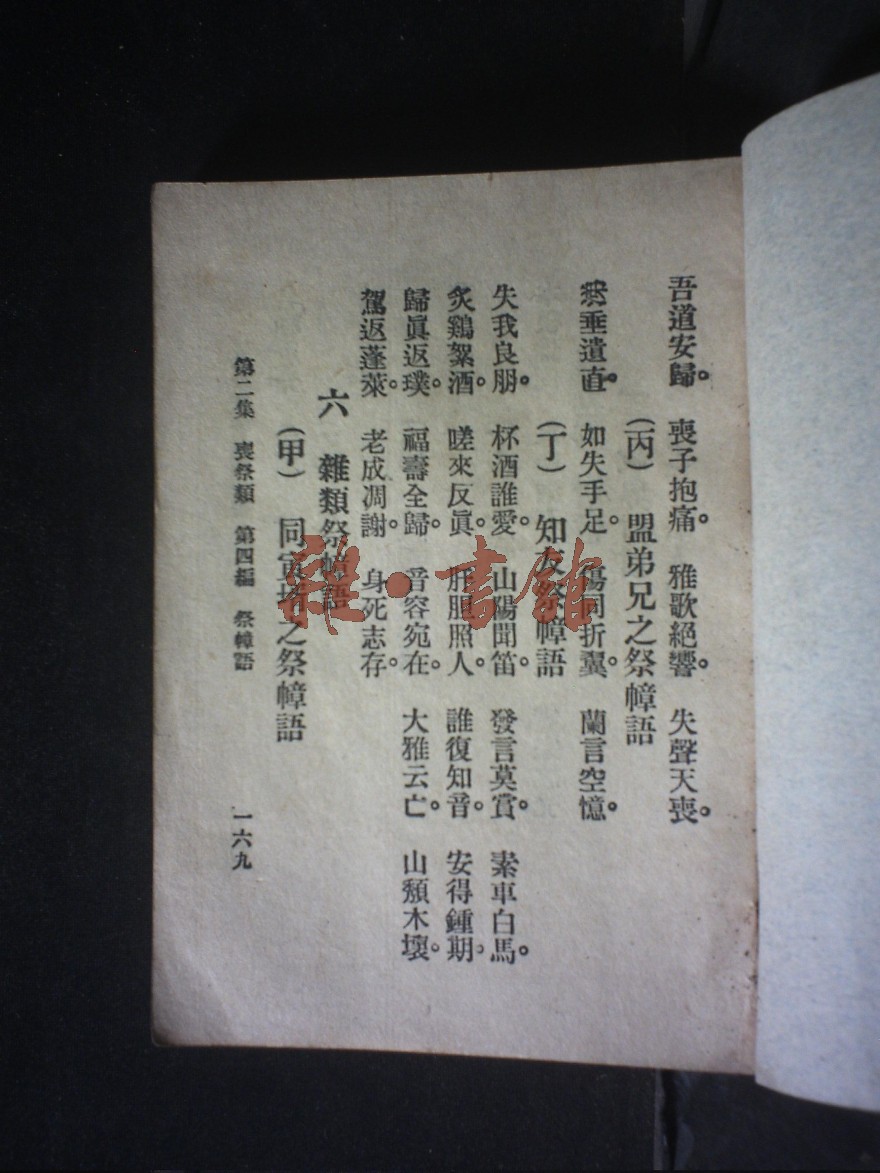 吾道安歸。 喪子抱痛。 雅歌絕響。 失聲天喪。
(丙) 盟弟兄之祭幛語
垂遺直。 如失手足。 傷同折翼。 蘭言空憶。
(丁) 知友祭幛語
失我良朋。 杯酒誰愛。 山陽聞笛。 發言莫賞。 素車白馬。
炙鷄絮酒。 嗟來反眞。 肝胆照人。 誰復知音。 安得鍾期。
歸眞返璞。 福壽全歸。 音容宛在。 大雅云亡。 山頹木壞。
駕返蓬萊。 老成凋謝。 身死志存。
六 雜類祭幛語
(甲) 同寅 之祭幛語
第二集 喪祭類 第四編 祭幛語 一六九
雜·書館